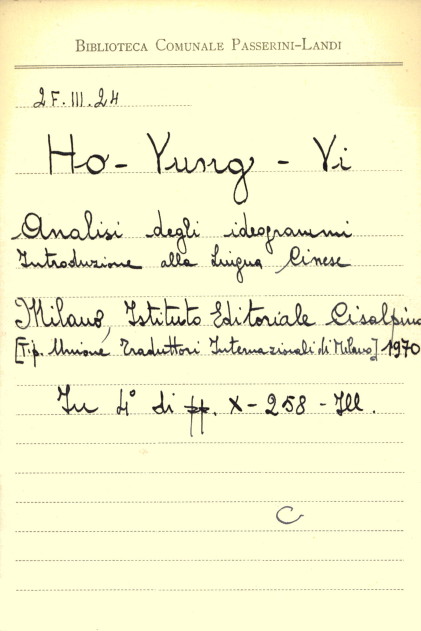 BIBLIOTECA COMUNALE PASSERINI-LANDI
2F.III.24
Ho-Yung-Yi
Analisi degli ideogrammi
Introduzione alla Lingua Cinese
Milano, Istituto Editoriale Cisalpino
[Tip. Unione Traduttori Internazionali di Milano] 1970
In 4° di pp. X-258-Ill.
C